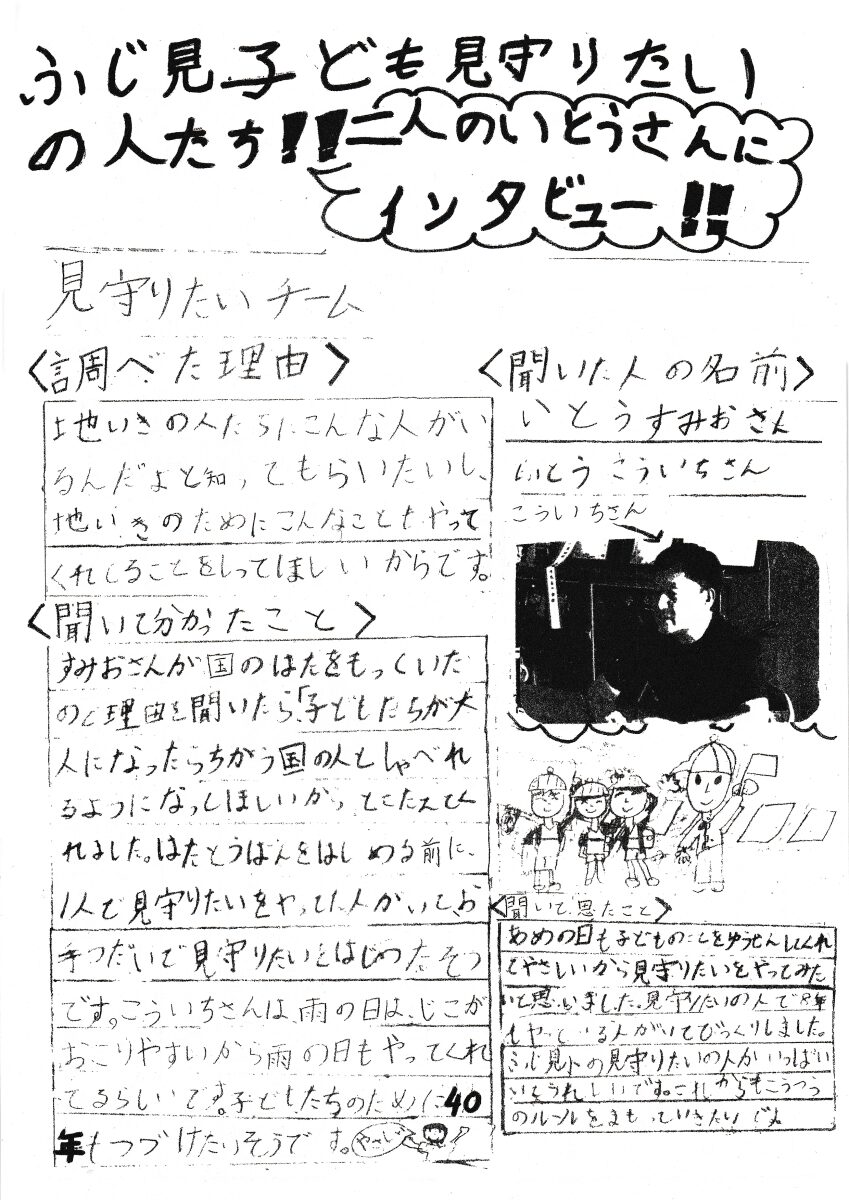 ふじ見子ども見守りたい
の人たち!!
二人のいとうさんに
インタビュー!!
見守りたいチーム
〈調べた理由〉
地いきの人たちにこんな人がい
るんだよと知ってもらいたいし、
地いきのためにこんなこともやって
くれてることをしってほしいからです。
〈聞いた人の名前〉
いとうすみおさん
いとうこういちさん
こういちさん
〈聞いて分かったこと〉
すみおさんが国のはたをもっていた
ので理由を聞いたら「子どもたちが大
人になったらちがう国の人としゃべれ
るようになってほしいからとこたえてく
れました。はたとうばんをはじめる前に、
1人で見守りたいをやってた人がいて、お
手つだいで見守りたいをはじめたそう
です。こういちさんは、雨の日は、じこが
おこりやすいから雨の日もやってくれ
てるらしいです。子どもたちのために40
年もつづけたいそうです。
やさしい
〈聞いて思たこと〉
あめの日も子どものことをゆうせんしてくれ
てやさしいから見守りたいをやってみた
いと思いました。見守りたいの人で8年
もやっている人がいてびっくりしました。
ふじ見小の見守りたいの人がいっぱい
いてうれしいです。これからもこうつう
のルールをまもっていきたいです